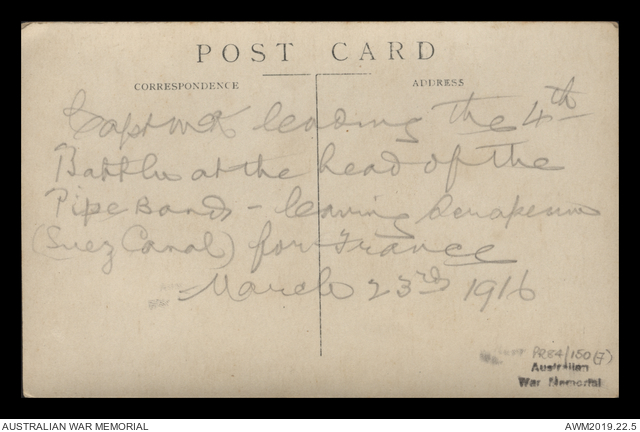 POST CARD
CORRESPONDENCE
ADDRESS
Capt McK leading the 4th
Battln at the head of the
Pipe Bands - leaving Serapeum
(Suez Canal) for France
March 23rd 1916
PR84/150(7)
Australian
War Memorial
AUSTRALIAN WAR MEMORIAL
AWM2019.22.5